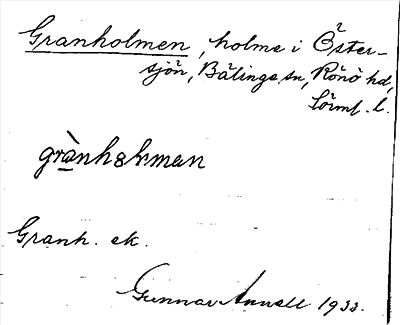 Granholmen, holme i Öster-
sjön, Bälinge sn, Rönö hd,
Sörml. l.
grànhɷlman
Granh. ek.
Gunnar 1933.